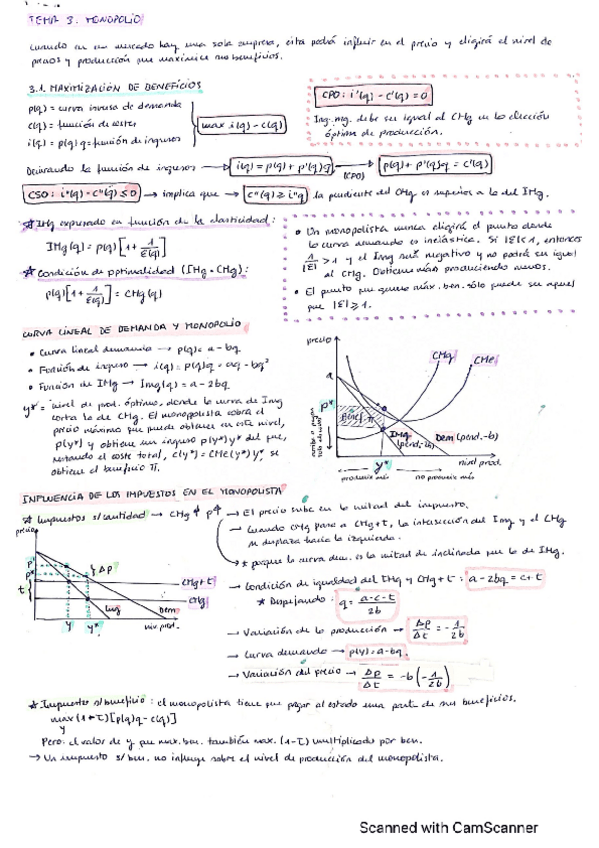 TEMA 3. MONOPOLIO
Cuando en un mercado hay una sola empresa, esta podrá influir en el precio y elegirá el nivel de
precios y producción que maximice sus beneficios.
3.1. MAXIMIZACIÓN DE BENEFICIOS
p(q) = curva inversa de demanda
c(q) = función de costes
i(q) = p(q) q = función de ingresos
max i(q) - c(q)
CPO: i'(q) - c'(q) = 0
Ing. mg. debe ser igual al CMg en la elección
óptima de producción.
Derivando la función de ingresos → i(q) = p(q) + p'(q)q → (CPO) p(q) + p'(q)q = c'(q)
CSO: i''(q) - c''(q) ≤ 0 → implica que → c''(q) ≥ i''q la pendiente del CMg es superior a la del IMg.
* IMg expresado en función de la elasticidad:
IMg(q) = p(q) [1 + 1/ε(q)]
* Condición de optimalidad (IMg = CMg):
p(q) [1 + 1/ε(q)] = CMg(q)
• Un monopolista nunca elegirá el punto donde
la curva demanda es inelástica. Si |ε| < 1, entonces
1/|ε| > 1 y el Img será negativo y no podrá ser igual
al CMg. Obtiene más produciendo menos.
• El punto que genere máx. ben. sólo puede ser aquel
que |ε| ≥ 1.
CURVA LINEAL DE DEMANDA Y MONOPOLIO
• Curva lineal demanda → p(q) = a - bq
• Función de ingreso → i(q) = p(q)q = aq - bq²
• Función de IMg → Img(q) = a - 2bq
y* = nivel de prod. óptimo, donde la curva de Img
corta la de CMg. El monopolista cobra el
precio máximo que puede obtener en este nivel,
p(y*) y obtiene un ingreso p(y*)y* del que,
restando el coste total, c(y*) = CMe(y*)y*, se
obtiene el beneficio π.
precio
a
p*
CMg
CMe
IMg
(pend. -2b)
Dem (pend. -b)
y*
nivel prod.
producir más
no producir más
INFLUENCIA DE LOS IMPUESTOS EN EL MONOPOLISTA
* Impuestos s/cantidad → CMg↑ p↑ → El precio sube en la mitad del impuesto.
→ Cuando CMg pasa a CMg+t, la intersección del Img y el CMg
se desplaza hacia la izquierda.
→ * porque la curva dem. es la mitad de inclinada que la de IMg.
precio
p'
p*
t
Δp
CMg+t
CMg
Img
Dem
y
y*
niv. prod.
→ Condición de igualdad del IMg y CMg+t : a - 2bq = c + t
* Despejando: q = (a-c-t)/2b
→ Variación de la producción → Δp/Δt = -1/2b
→ Curva demanda → p(y) = a - bq.
→ Variación del precio → Δp/Δt = -b(-1/2b)
* Impuestos s/beneficio: el monopolista tiene que pagar al estado una parte de sus beneficios.
max (1-τ)[p(q)q - c(q)]
y
Pero: el valor de y que max. ben. también max. (1-τ) multiplicado por ben.
→ Un impuesto s/ben. no influye sobre el nivel de producción del monopolista.
Scanned with CamScanner